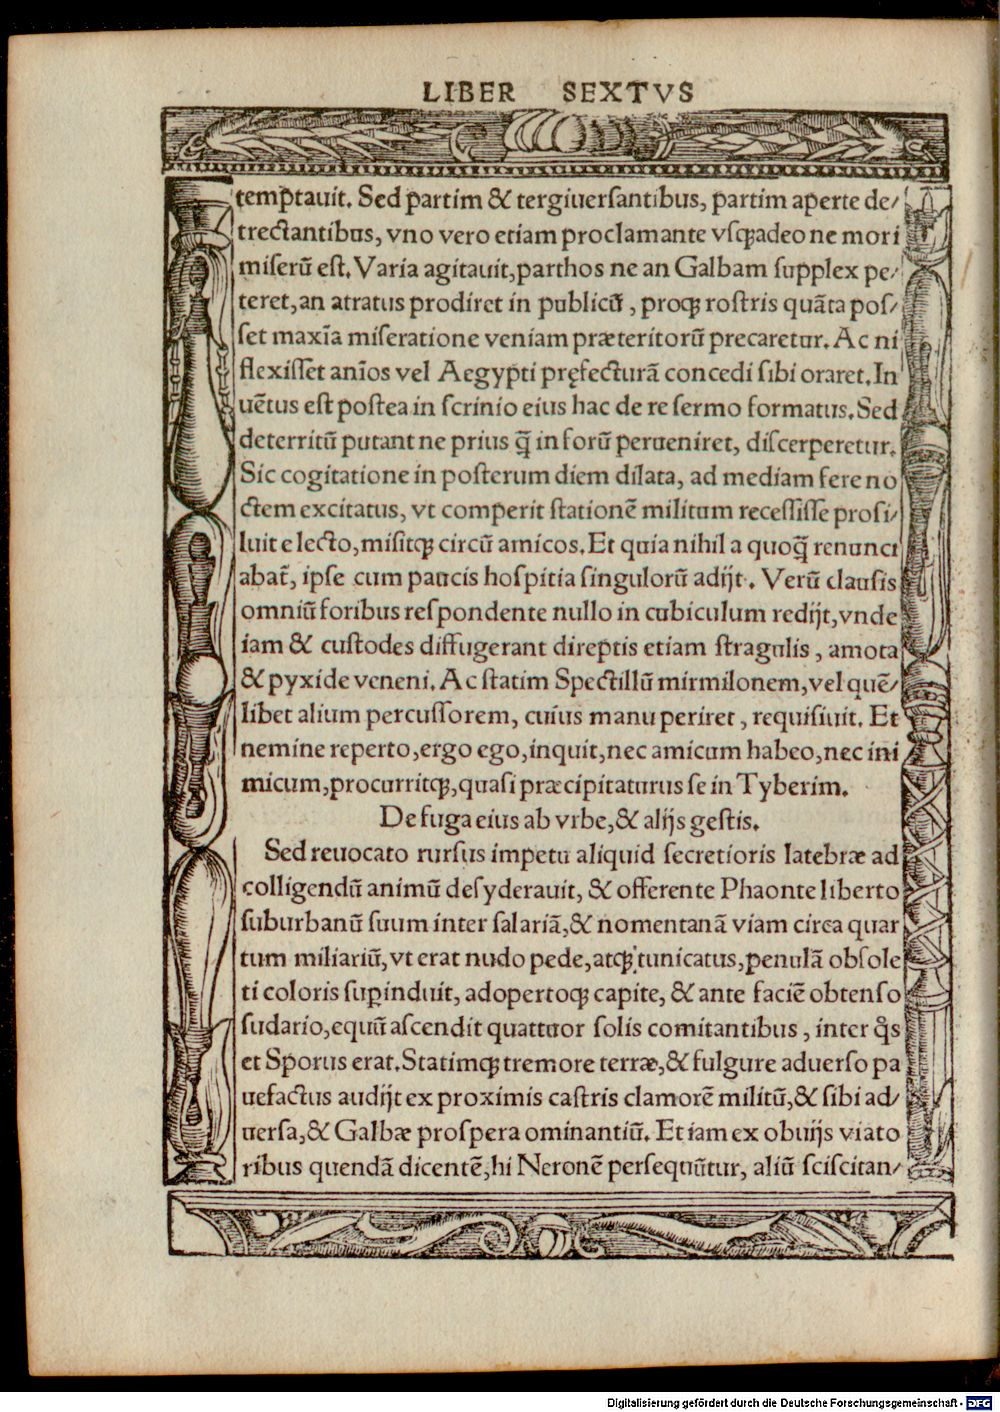 LIBER SEXTVS
temptauit. Sed partim & tergiuersantibus, partim aperte de/
trectantibus, vno vero etiam proclamante vsq̃adeo ne mori
miserū est. Varia agitauit, parthos ne an Galbam supplex pe/
teret, an atratus prodiret in publicū, proq; rostris quāta pos/
set maxīa miseratione veniam præteritorū precaretur. Ac ni
flexisset anīos vel Aegypti pręfecturā concedi sibi oraret. In
uētus est postea in scrinio eius hac de re sermo formatus. Sed
deterritū putant ne prius q̄ in forū perueniret, discerperetur.
Sic cogitatione in posterum diem dilata, ad mediam fere no
ctem excitatus, vt comperit stationē militum recessisse prosi/
luit e lecto, misitq; circū amicos. Et quia nihil a quoq̄ renunci
abat̄, ipse cum paucis hospitia singulorū adijt. Verū clausis
omniū foribus respondente nullo in cubiculum redijt, vnde
iam & custodes diffugerant direptis etiam stragulis, amota
& pyxide veneni. Ac statim Spectillū mirmilonem, vel quē/
libet alium percussorem, cuius manu periret, requisiuit. Et
nemine reperto, ergo ego, inquit, nec amicum habeo, nec ini
micum, procurritq;, quasi præcipitaturus se in Tyberim.
De fuga eius ab vrbe, & alijs gestis.
Sed reuocato rursus impetu aliquid secretioris latebræ ad
colligendū animū desyderauit, & offerente Phaonte liberto
suburbanū suum inter salariā, & nomentanā viam circa quar
tum miliariū, vt erat nudo pede, atq; tunicatus, penulā obsole
ti coloris suꝑinduit, adopertoq; capite, & ante faciē obtenso
sudario, equū ascendit quattuor solis comitantibus, inter q̊s
et Sporus erat. Statimq; tremore terræ, & fulgure aduerso pa
uefactus audijt ex proximis castris clamorē militū, & sibi ad/
uersa, & Galbæ prospera ominantiū. Et iam ex obuijs viato
ribus quendā dicentē, hi Neronē persequūtur, aliū sciscitan/
Digitalisierung gefördert durch die Deutsche Forschungsgemeinschaft - DFG